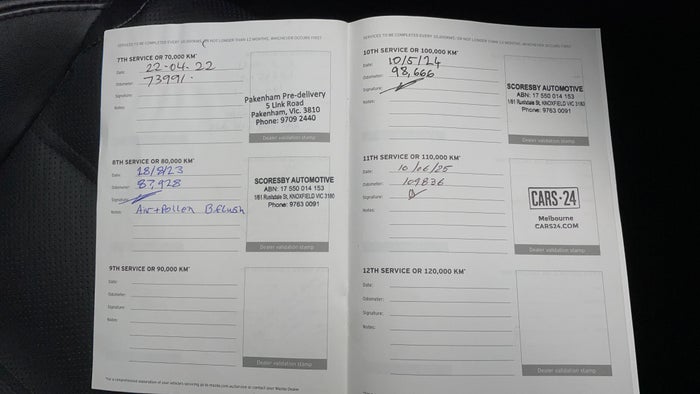 SERVICES TO BE COMPLETED EVERY 10,000KMS, OR NOT LONGER THAN 12 MONTHS, WHICHEVER OCCURS FIRST
7TH SERVICE OR 70,000 KM*
Date: 22-04-22
Odometer: 73991.
Signature:
Notes:
Pakenham Pre-delivery
5 Link Road
Pakenham, Vic. 3810
Phone: 9709 2440
Dealer validation stamp
8TH SERVICE OR 80,000 KM*
Date: 18/8/23
Odometer: 87,928
Signature:
Notes: Air+Pollen B.flush
SCORESBY AUTOMOTIVE
ABN: 17 550 014 153
1/81 Rushdale St, KNOXFIELD VIC 3180
Phone: 9763 0091
Dealer validation stamp
9TH SERVICE OR 90,000 KM*
Date:
Odometer:
Signature:
Notes:
Dealer validation stamp
*For a comprehensive explanation of your vehicle's servicing go to mazda.com.au/service or contact your Mazda Dealer
SERVICES TO BE COMPLETED EVERY 10,000KMS, OR NOT LONGER THAN 12 MONTHS, WHICHEVER OCCURS FIRST
10TH SERVICE OR 100,000 KM*
Date: 10/5/24
Odometer: 98,666
Signature:
Notes:
SCORESBY AUTOMOTIVE
ABN: 17 550 014 153
1/81 Rushdale St, KNOXFIELD VIC 3180
Phone: 9763 0091
Dealer validation stamp
11TH SERVICE OR 110,000 KM*
Date: 10/06/25
Odometer: 109836
Signature:
Notes:
CARS·24
Melbourne
CARS24.COM
Dealer validation stamp
12TH SERVICE OR 120,000 KM*
Date:
Odometer:
Signature:
Notes:
Dealer validation stamp